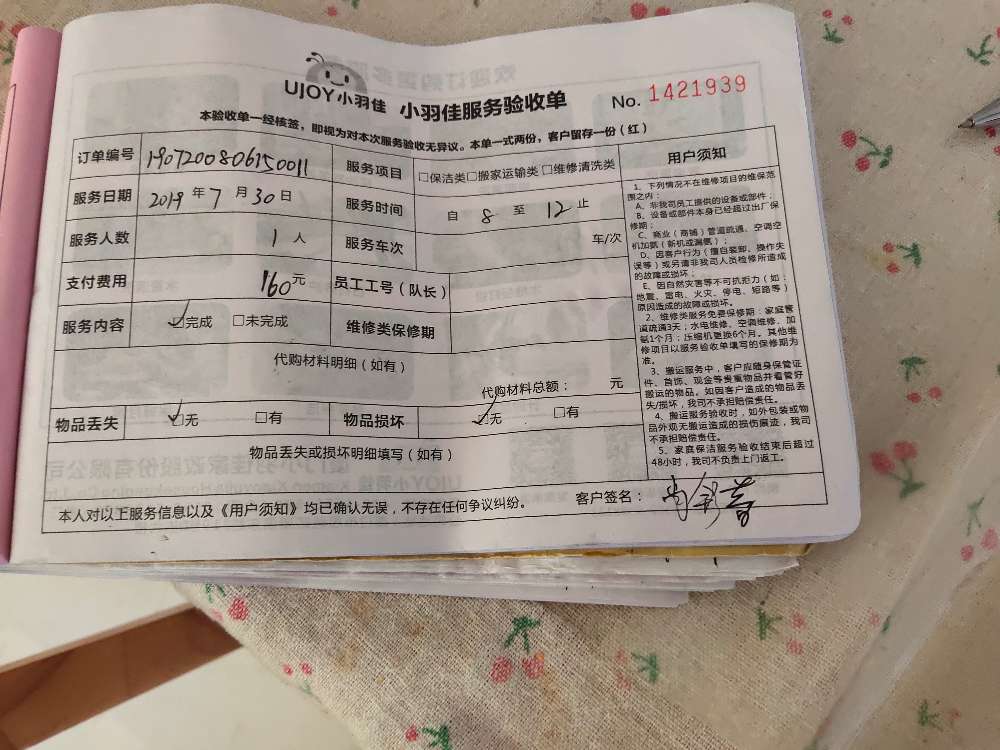 UJOY小羽佳 小羽佳服务验收单 No. 1421939
本验收单一经核签，即视为对本次服务验收无异议。本单一式两份，客户留存一份（红）
订单编号 1907200806150011 服务项目 □保洁类□搬家运输类□维修清洗类
服务日期 2019 年 7 月 30 日 服务时间 自 8 至 12 止
服务人数 1 人 服务车次 车/次
支付费用 160元 员工工号（队长）
服务内容 ☑完成 □未完成 维修类保修期
代购材料明细（如有）
代购材料总额： 元
物品丢失 ☑无 □有 物品损坏 ☑无 □有
物品丢失或损坏明细填写（如有）
本人对以上服务信息以及《用户须知》均已确认无误，不存在任何争议纠纷。 客户签名：
用户须知
1、下列情况不在维修项目的维保范
围之内：
A、非我司员工提供的设备或部件；
B、设备或部件本身已经超过出厂保
修期；
C、商业（商铺）管道疏通、空调空
机加氨（新机或漏氨）；
D、因客户行为（擅自装卸、操作失
误等）或另请非我司人员检修所造成
的故障或损坏；
E、因自然灾害等不可抗拒力（如：
地震、雷电、火灾、停电、短路等）
原因造成的故障或损坏。
2、维修类服务免费保修期：家庭管
道疏通3天；水电维修、空调维修、加
氨1个月；压缩机更换6个月。其他维
修项目以服务验收单填写的保修期为
准。
3、搬运服务中，客户应随身保管证
件、首饰、现金等贵重物品并看管好
搬运的物品。如因客户造成的物品丢
失/损坏，我司不承担赔偿责任。
4、搬运服务验收时，如外包装或物
品外观无搬运造成的损伤痕迹，我司
不承担赔偿责任。
5、家庭保洁服务验收结束后超过
48小时，我司不负责上门返工。